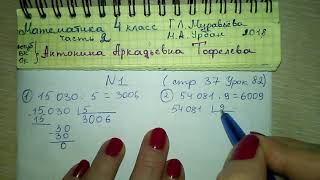 Математика 4 класс Г.Л. Муравьёва
часть 2 М.А. Урбан 2018
Антонина Аркадьевна Тофелева
N1 (стр 37 Урок 82)
① 15 030 : 5 = 3006
② 54 081 : 9 = 6009
15 030 5
15 3006
30
30
0
54 081 9